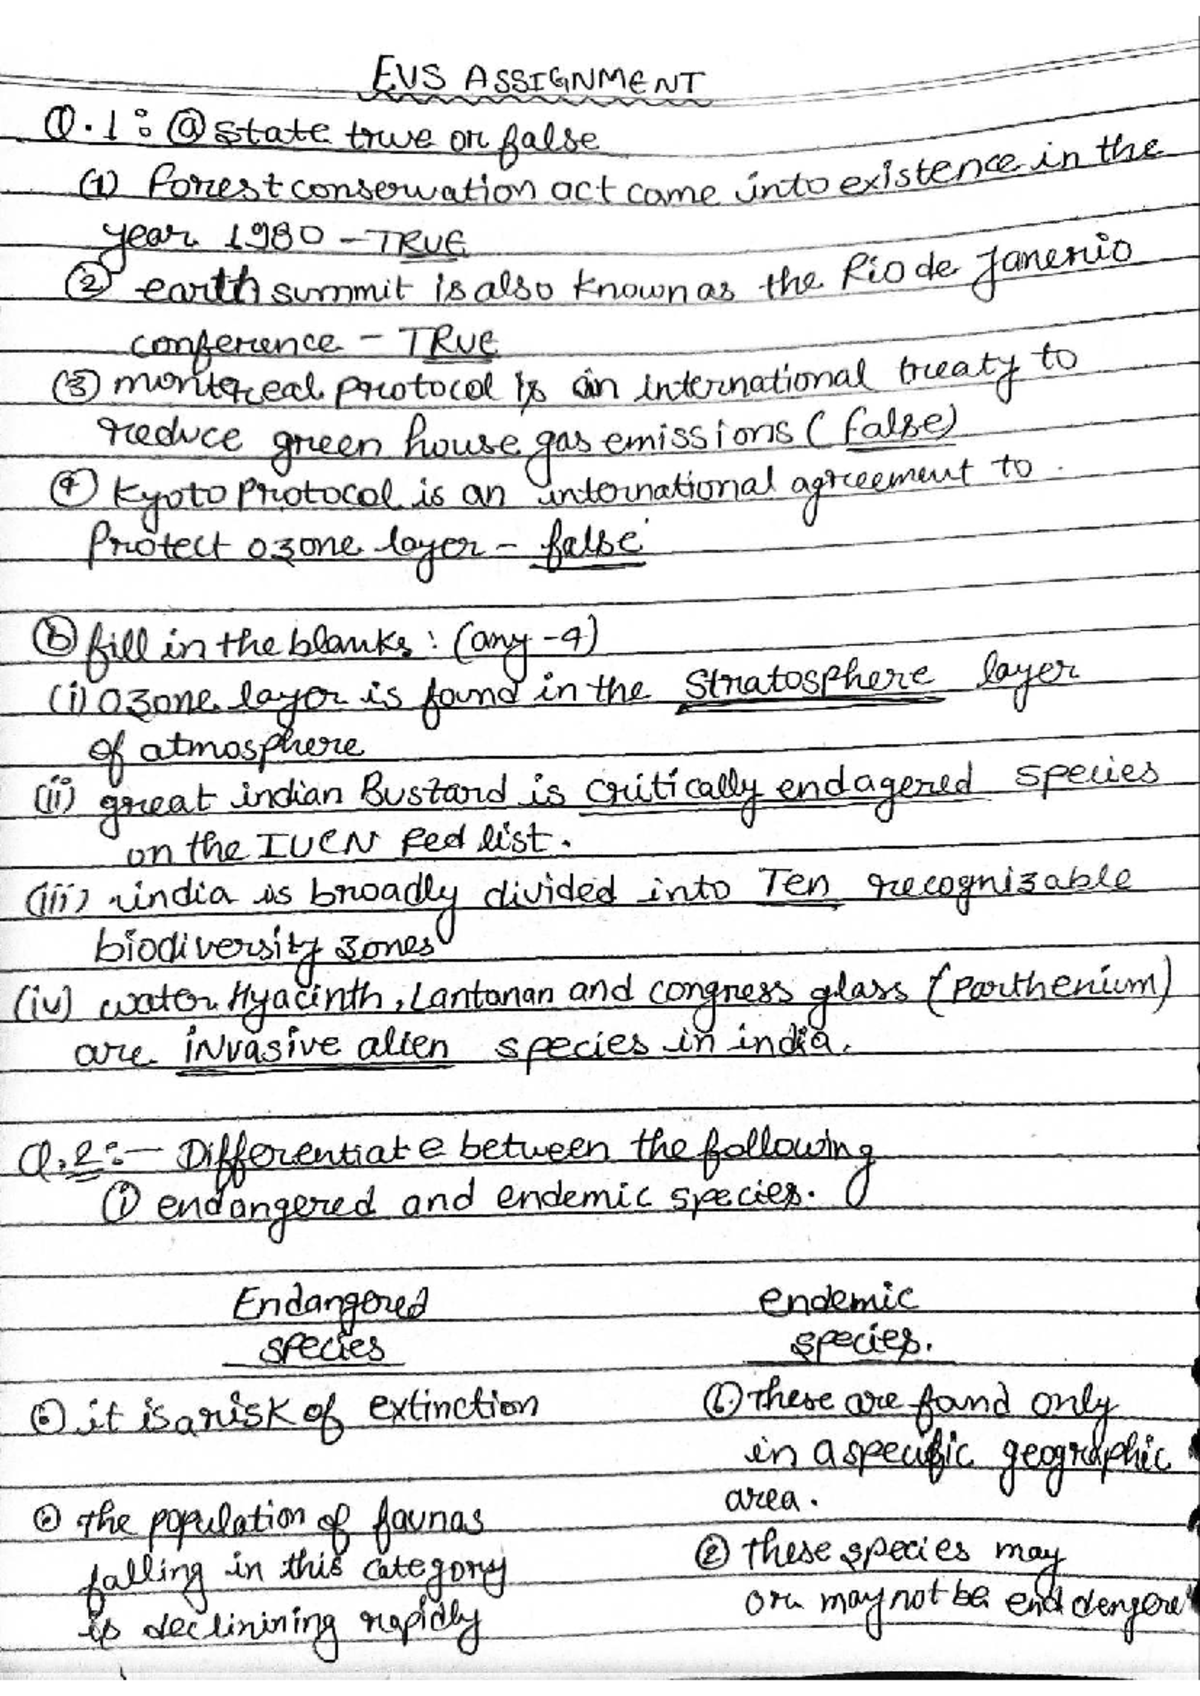 EVS ASSIGNMENT
Q.1: (a) state true or false
(1) Forest conservation act came into existence in the
year 1980 - TRUE
(2) earth summit is also known as the Rio de Janerio
conference - TRUE
(3) montereal protocol is an international treaty to
reduce green house gas emissions (false)
(4) Kyoto Protocol is an international agreement to
Protect ozone layer - false
(b) fill in the blanks : (any -4)
(i) Ozone layer is found in the Stratosphere layer
of atmosphere
(ii) great indian Bustard is critically endagered species
on the IUCN Red list.
(iii) india is broadly divided into Ten recognizable
biodiversity zones
(iv) water Hyacinth, Lantanan and congress glass (Parthenium)
are invasive alien species in india.
Q.2:- Differentiate between the following
(i) endangered and endemic species.
Endangered
species
endemic
species.
it is a risk of extinction
the population of faunas
falling in this category
is declinining rapidly
(1) these are found only
in a specific geographic
area.
(2) these species may
or may not be enddengere